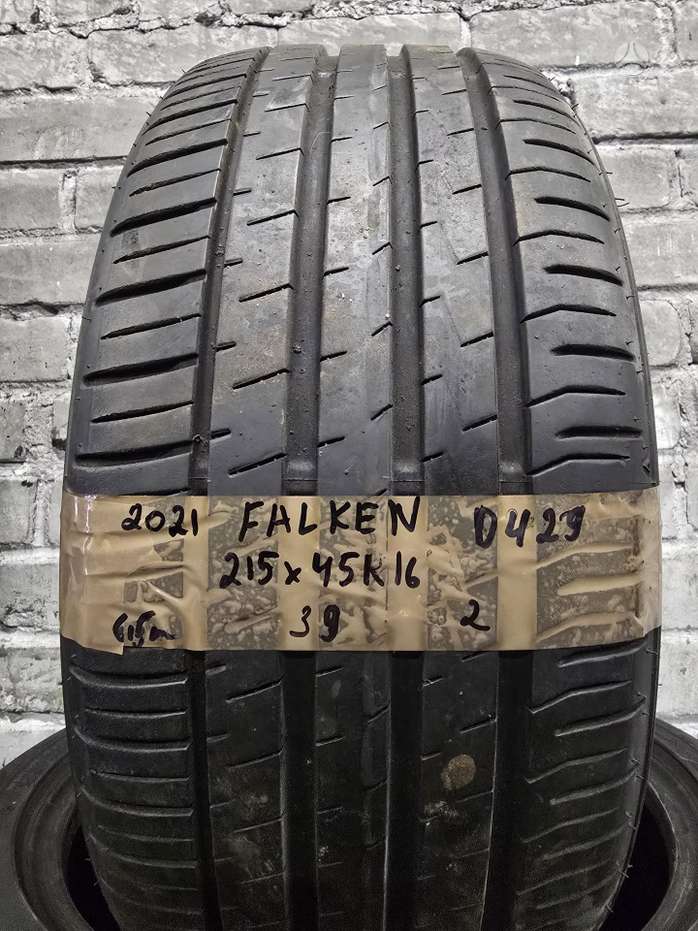 2021 FALKEN D429
215x45R16
6,5m 39 2